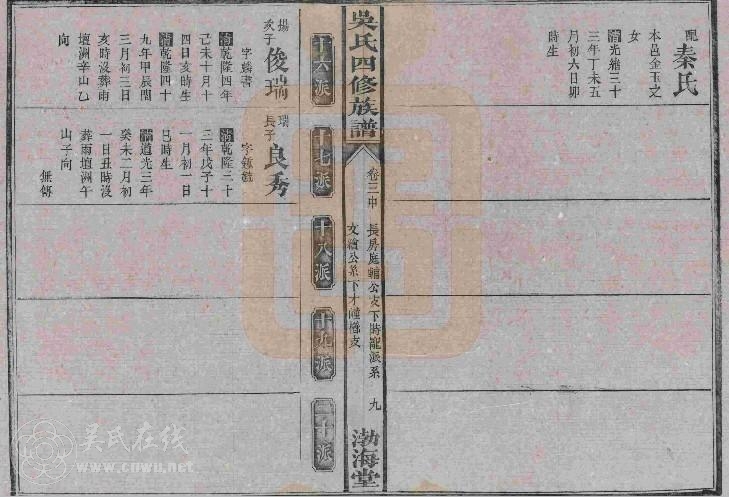 配秦氏
本邑金玉之
女
清光緒三十
三年丁未五
月初六日卯
時生
吳氏四修族譜
卷三中
長房庭輔公支下時龍派系
九
渤海堂
十六派
十七派
十八派
十九派
二十派
揚次子俊瑞
字
清乾隆四年
己未十月十
四日亥時生
清乾隆四十
九年甲辰閏
三月初三日
亥時沒葬雨
壇洲辛山乙
向
瑞長子良秀
字
清乾隆三十
三年戊子十
一月初一日
巳時生
清道光三年
癸未二月初
一日丑時沒
葬雨壇洲午
山子向
無傳
吴氏在线
www.cnwu.net